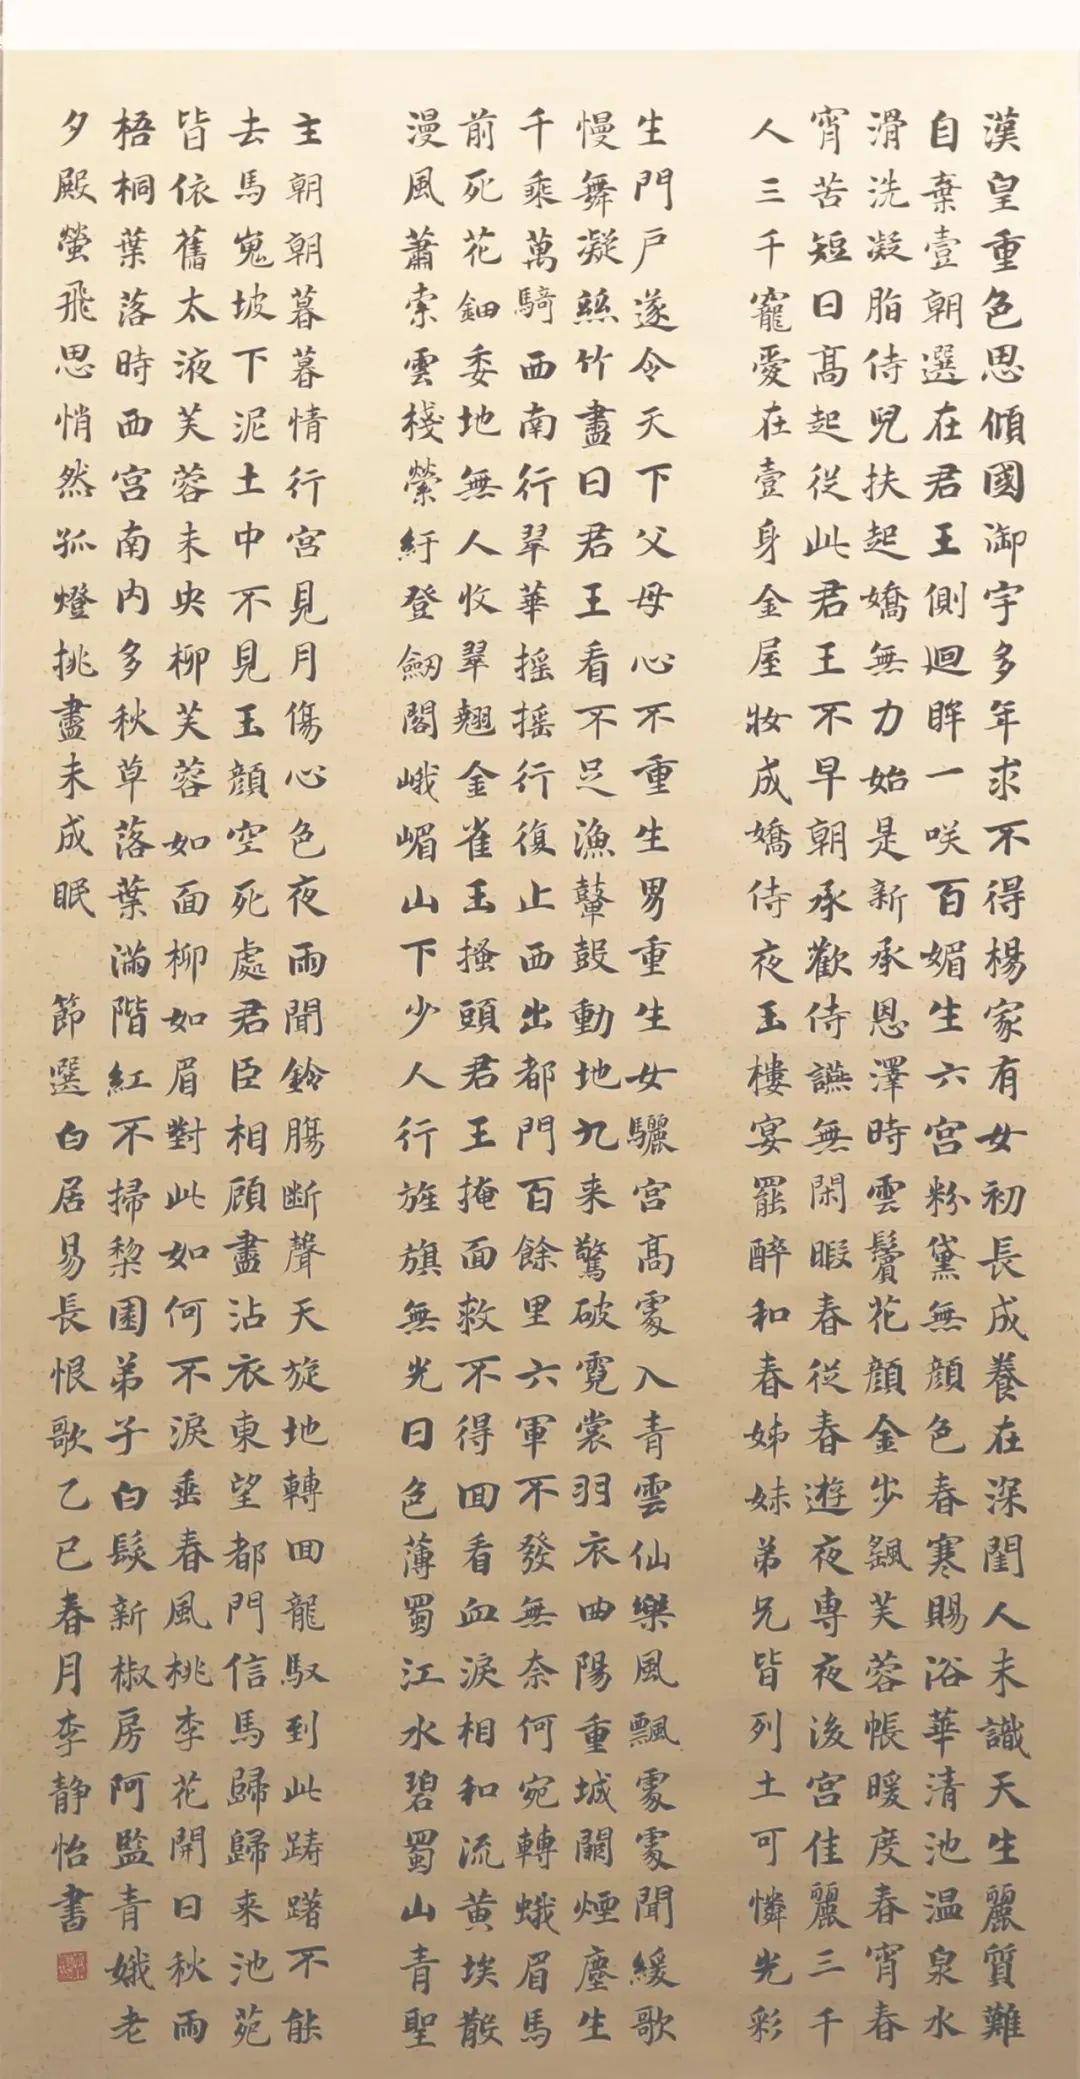 漢皇重色思傾國御宇多年求不得楊家有女初長成養在深閨人未識天生麗質難
自棄壹朝選在君王側迴眸一咲百媚生六宮粉黛無顏色春寒賜浴華清池温泉水
滑洗凝脂侍兒扶起嬌無力始是新承恩澤時雲鬢花顏金步飖芙蓉帳暖度春宵春
宵苦短日髙起從此君王不早朝承歡侍讌無閑暇春從春遊夜専夜後宮佳麗三千
人三千寵愛在壹身金屋妝成嬌侍夜玉樓宴罷醉和春姊妹弟兄皆列土可憐光彩
生門戶遂令天下父母心不重生男重生女驪宮髙處入青雲仙樂風飄處處聞緩歌
慢舞凝絲竹盡日君王看不足漁鼙鼓動地九来驚破霓裳羽衣曲陽重城闕煙塵生
千乘萬騎西南行翠華搖搖行復止西出都門百餘里六軍不發無奈何宛轉蛾眉馬
前死花鈿委地無人收翠翹金雀玉搔頭君王掩面救不得回看血淚相和流黄埃散
漫風蕭索雲棧縈紆登劒閣峨嵋山下少人行旌旗無光日色薄蜀江水碧蜀山青聖
主朝朝暮暮情行宮見月傷心色夜雨聞鈴腸断聲天旋地轉回龍馭到此踌躇不能
去馬嵬坡下泥土中不見玉顏空死處君臣相顧盡沾衣東望都門信馬歸歸来池苑
皆依舊太液芙蓉未央柳芙蓉如面柳如眉對此如何不淚垂春風桃李花開日秋雨
梧桐葉落時西宮南内多秋草落葉滿階紅不掃梨園弟子白髮新椒房阿監青娥老
夕殿螢飛思悄然孤燈挑盡未成眠 節選白居易長恨歌乙巳春月李静怡書